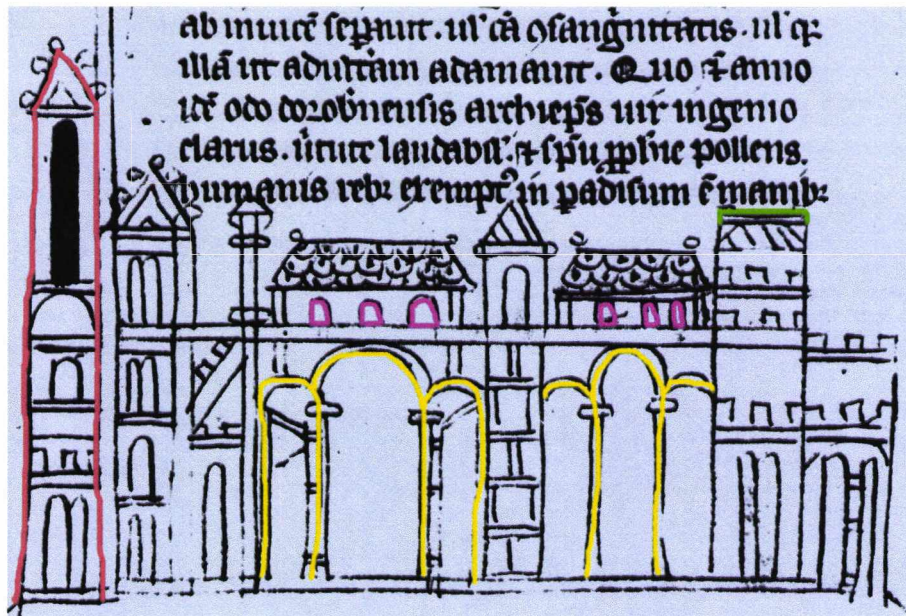 ab inuicē sep̄arūt. ul' cā ↄsang̍nitatis. ul' q
illā ut adult̍am adamauit. Quo ⁊ anno
idē odo dorob̍nensis archiep̄s uir ingenio
clarus. ⁊ laudabil'. ⁊ sp̄u pollens.
humanis reb; exempt᷒ in padisum ē manib;